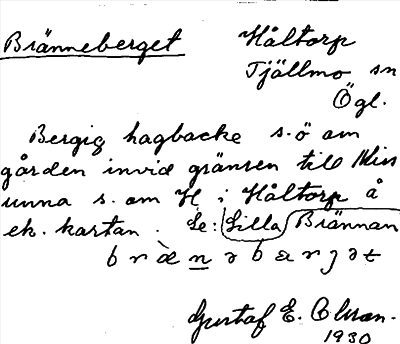 Bränneberget Håltorp
Tjällmo sn
Ögl.
Bergig hagbacke s.ö om
gården invid gränsen till Min
unna s. om H i Håltorp å
ek. kartan. Se: Lilla Brännan
Gustaf E.
1930